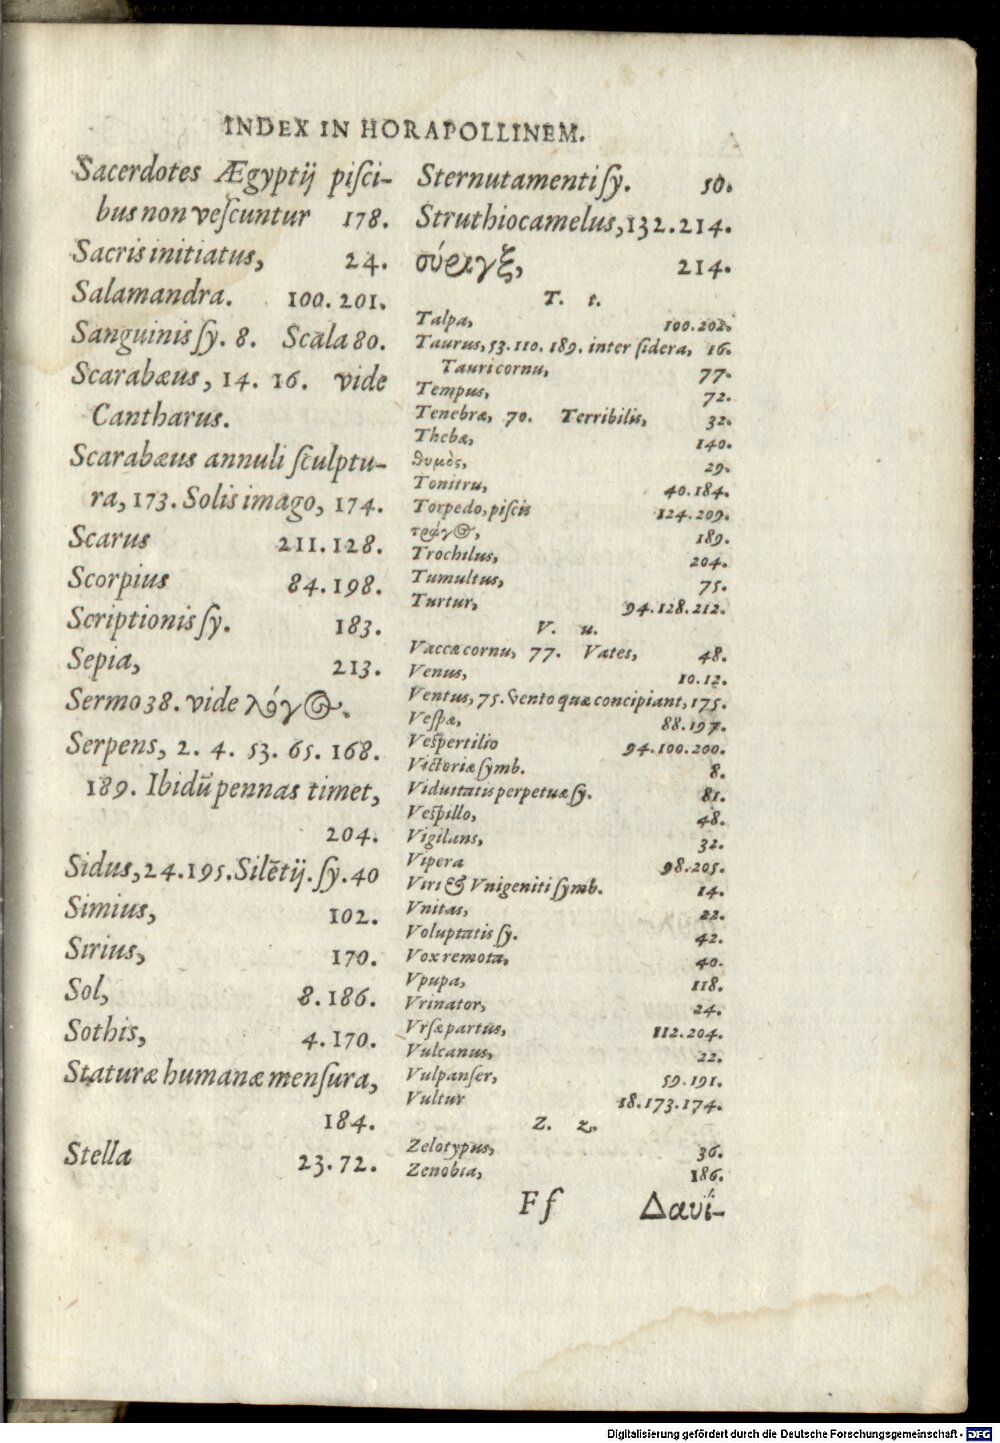 INDEX IN HORAPOLLINEM.
Sacerdotes Ægyptij piſci-
bus non veſcuntur 178.
Sacris initiatus, 24.
Salamandra. 100. 201.
Sanguinis ſy. 8. Scala 80.
Scarabæus, 14. 16. vide
Cantharus.
Scarabæus annuli ſculptu-
ra, 173. Solis imago, 174.
Scarus 211. 128.
Scorpius 84. 198.
Scriptionis ſy. 183.
Sepia, 213.
Sermo 38. vide λόγος.
Serpens, 2. 4. 53. 65. 168.
189. Ibidū pennas timet,
204.
Sidus, 24. 195. Silētij. ſy. 40
Simius, 102.
Sirius, 170.
Sol, 8. 186.
Sothis, 4. 170.
Staturæ humanæ menſura,
184.
Stella 23. 72.
Sternutamenti ſy. 50.
Struthiocamelus, 132. 214.
σύριγξ, 214.
T. t.
Talpa, 100. 202.
Taurus, 53. 110. 189. inter ſidera, 16.
Tauri cornu, 77.
Tempus, 72.
Tenebræ, 70. Terribilis, 32.
Thebæ, 140.
θυμὸς, 29.
Tonitru, 40. 184.
Torpedo, piſcis 124. 209.
τράγος, 189.
Trochilus, 204.
Tumultus, 75.
Turtur, 94. 128. 212.
V. u.
Vaccæ cornu, 77. Vates, 48.
Venus, 10. 12.
Ventus, 75. vento quæ concipiant, 175.
Veſpæ, 88. 197.
Veſpertilio 94. 100. 200.
Victoriæ ſymb. 8.
Viduitatis perpetuæ ſy. 81.
Veſpillo, 48.
Vigilans, 32.
Vipera 98. 205.
Viri & Vnigeniti ſymb. 14.
Vnitas, 22.
Voluptatis ſy. 42.
Vox remota, 40.
Vpupa, 118.
Vrinator, 24.
Vrſæ partus, 112. 204.
Vulcanus, 22.
Vulpanſer, 59. 191.
Vultur 18. 173. 174.
Z. z.
Zelotypus, 36.
Zenobia, 186.
Ff Δαυΐ-
Digitalisierung gefördert durch die Deutsche Forschungsgemeinschaft - DFG